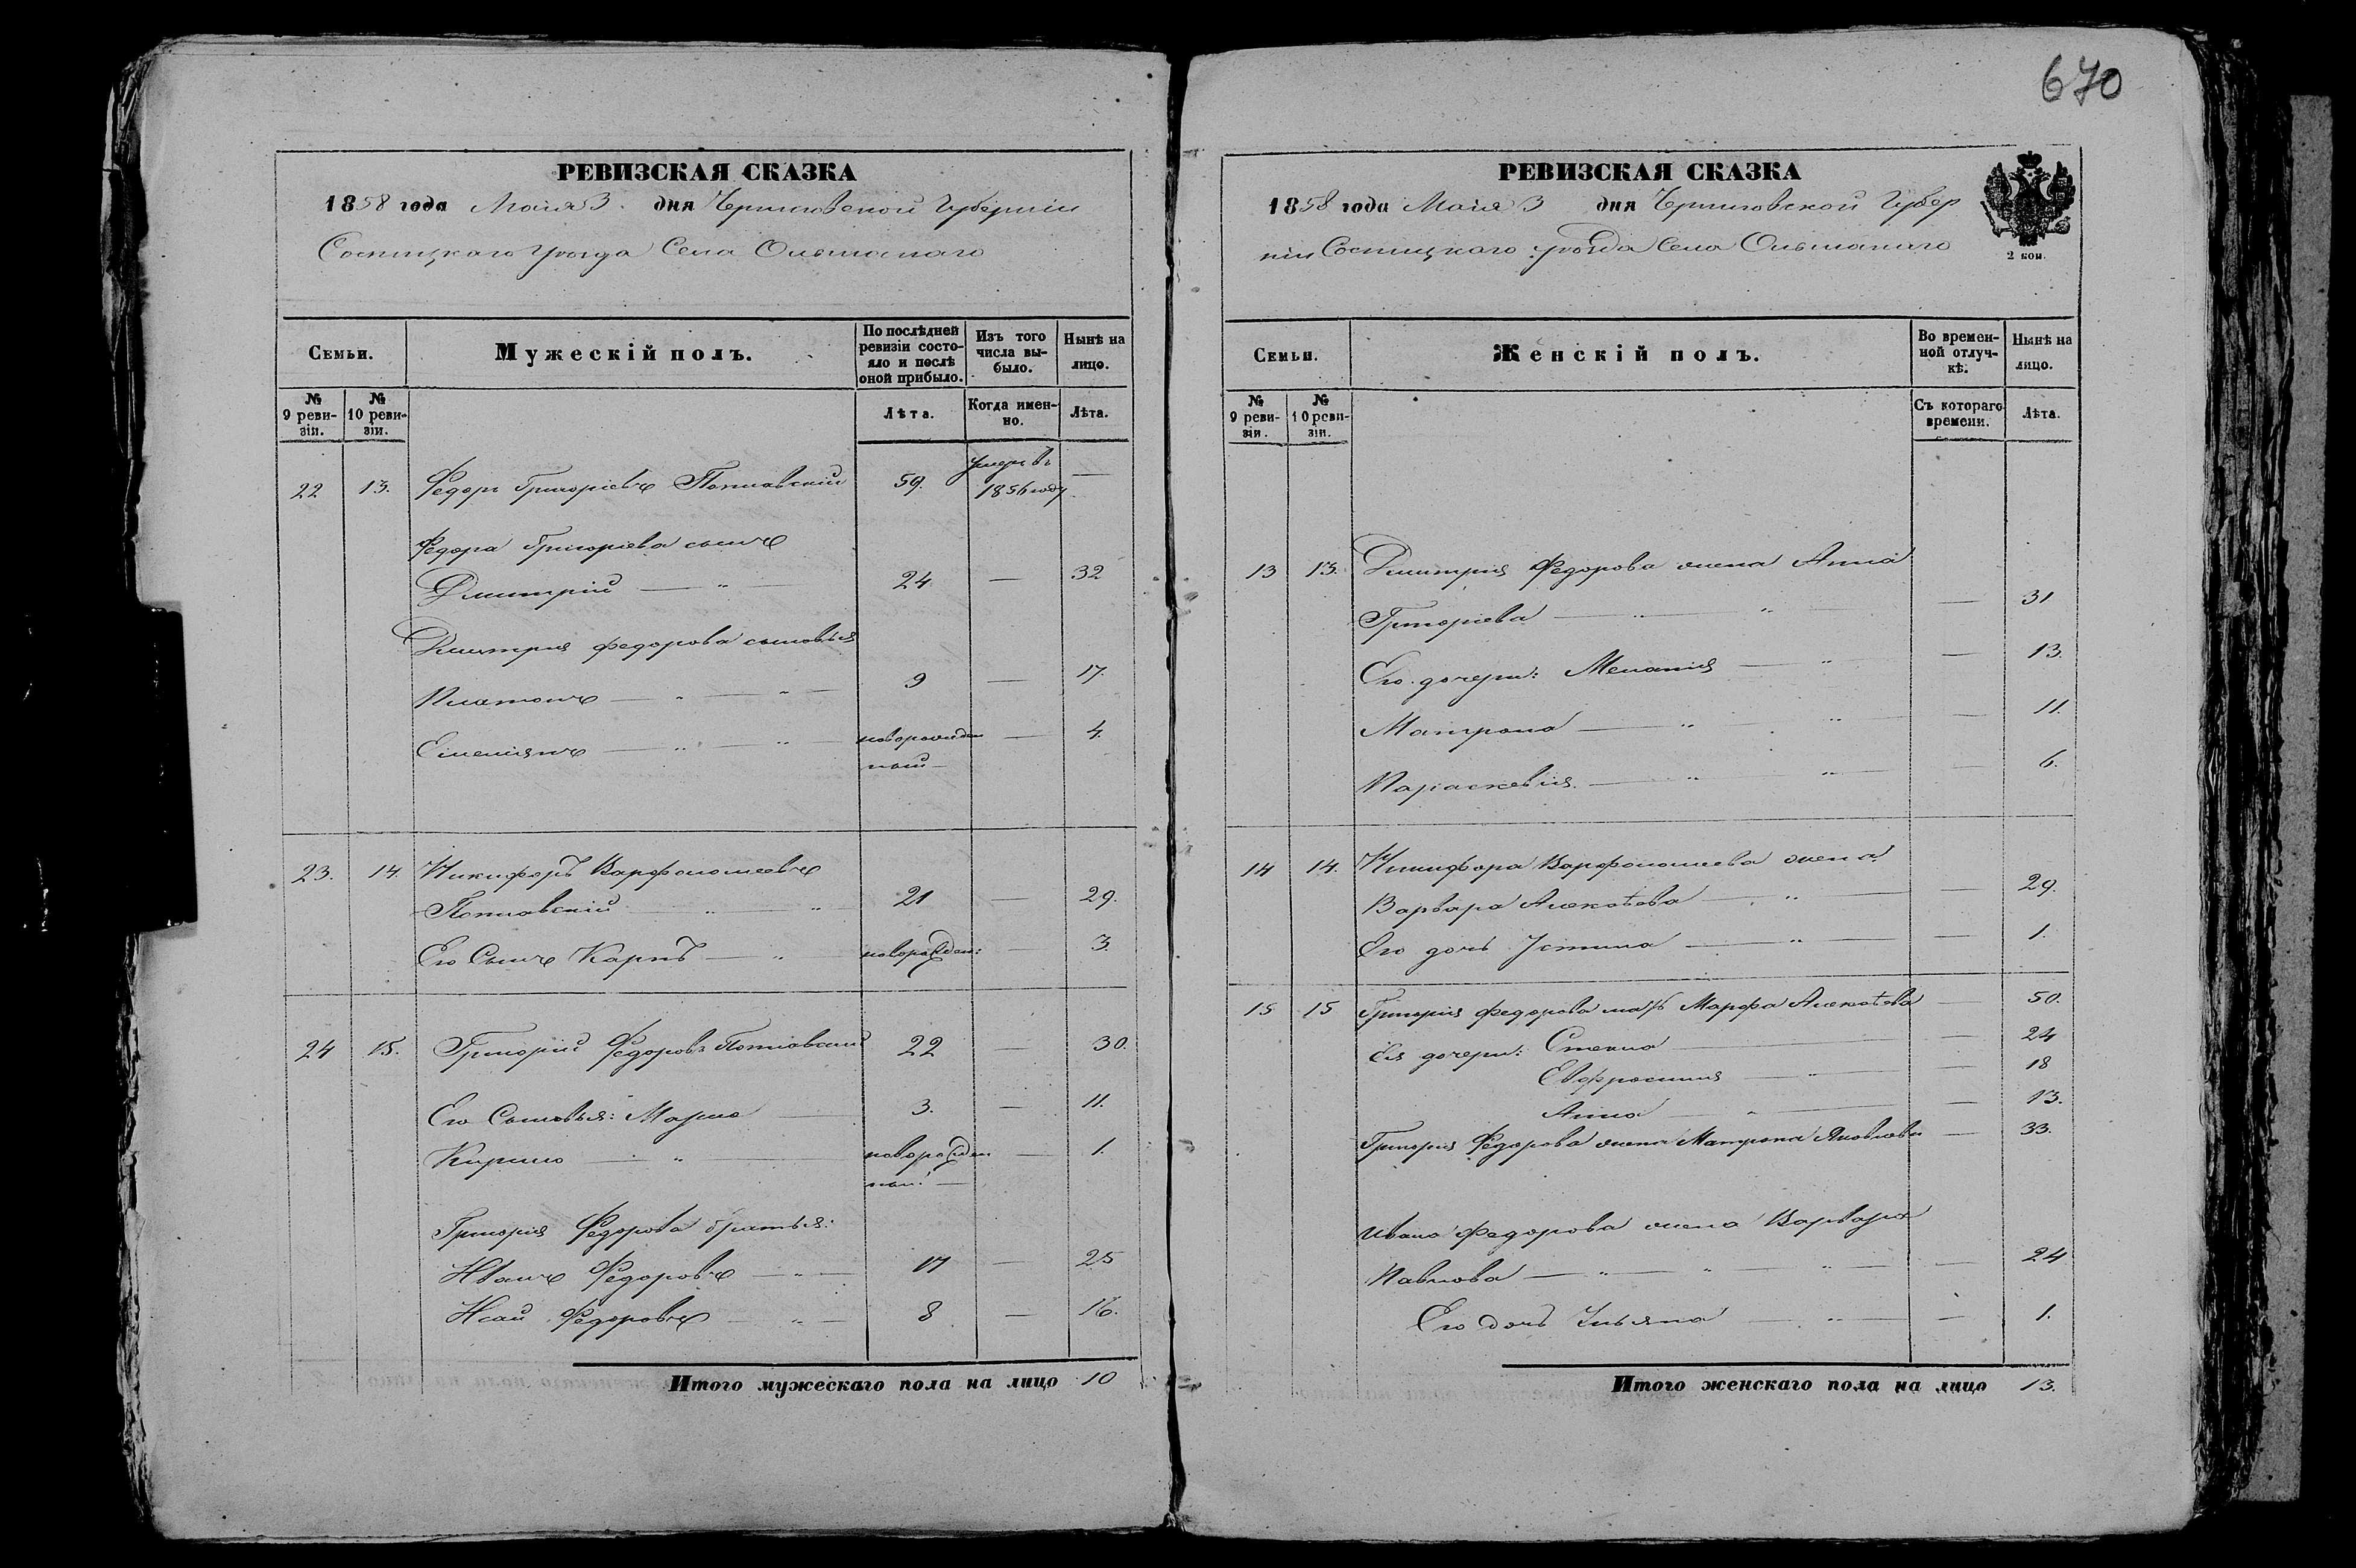 670
РЕВИЗСКАЯ СКАЗКА
1858 года Маія 3. дня Черниговской Губерніи
Сосницкаго уѣзда Села Ольшанаго
Семьи.
Мужескій полъ.
По послѣдней ревизіи состояло и послѣ оной прибыло.
Изъ того числа выбыло.
Нынѣ на лицо.
№ 9 ревизіи.
№ 10 ревизіи.
Лѣта.
Когда именно.
Лѣта.
22 13. Федоръ Григоріевъ 59. умеръ въ 1856 году —
Федора Григоріева сынъ
Дмитрій — " — 24. — 32
Дмитрія Федорова сыновья
Платонъ — " — " — 9 — 17.
Емеліянъ — " — " — новорожденный — — 4.
23. 14. Никифоръ Варфоломеевъ
21 — 29.
Его Сынъ Карпъ — " новорожден: — 3
24 15. Григорій Федоровъ 22 — 30.
Его Сыновья: Марко — 3. — 11.
Кирило — " — новорожденный: — — 1.
Григорія Федорова братья:
Иванъ Федоровъ — " — 17 — 25
Исай Федоровъ — " — 8 — 16.
Итого мужескаго пола на лицо 10
РЕВИЗСКАЯ СКАЗКА
1858 года Маія 3 дня Черниговской Губер
ніи Сосницкаго уѣзда Села Ольшанаго
2 коп.
Семьи.
Женскій полъ.
Во временной отлучкѣ.
Нынѣ на лицо.
№ 9 ревизіи.
№ 10 ревизіи.
Съ котораго времени.
Лѣта.
13 13. Дмитрія Федорова жена Анна
Григоріева — " — " — 31
Его дочери: Меланія — " — 13.
Матрона — " — " — 11.
Параскевія. — " — " — 6.
14 14. Никифора Варфоломеева жена
Варвара Алексѣева — " — 29.
Его дочь Устина — " — — 1.
15 15 Григорія Федорова мать Марфа Алексѣева — 50.
Ея дочери: — — 24
Евфросинія — " — — 18
Анна — " — — 13.
Григорія Федорова жена Матрона Яковлева — 33.
Ивана Федорова жена Варвара
Павлова — " — " — " — — 24
Его дочь Ульяна — " — — 1.
Итого женскаго пола на лицо 13.